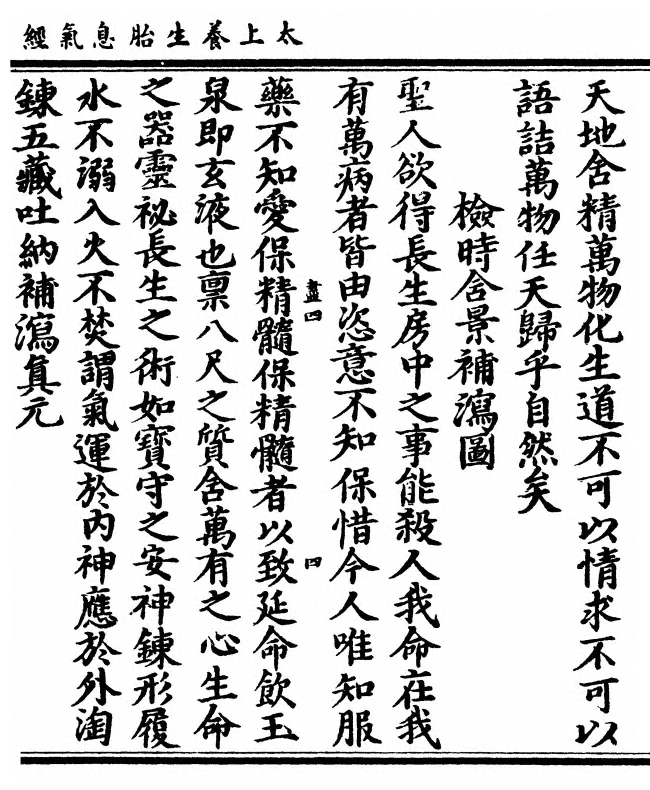 太上養生胎息氣經
天地含精萬物化生道不可以情求不可以
語詰萬物任天歸乎自然矣
檢時含景補瀉圖
聖人欲得長生房中之事能殺人我命在我
有萬病者皆由恣意不知保惜今人唯知服
藥不知愛保精髓保精髓者以致延命飲玉
盡四
四
泉即玄液也禀八尺之質含萬有之心生命
之器靈祕長生之術如寶守之安神鍊形履
水不溺入火不焚謂氣運於内神應於外淘
鍊五藏吐納補瀉真元